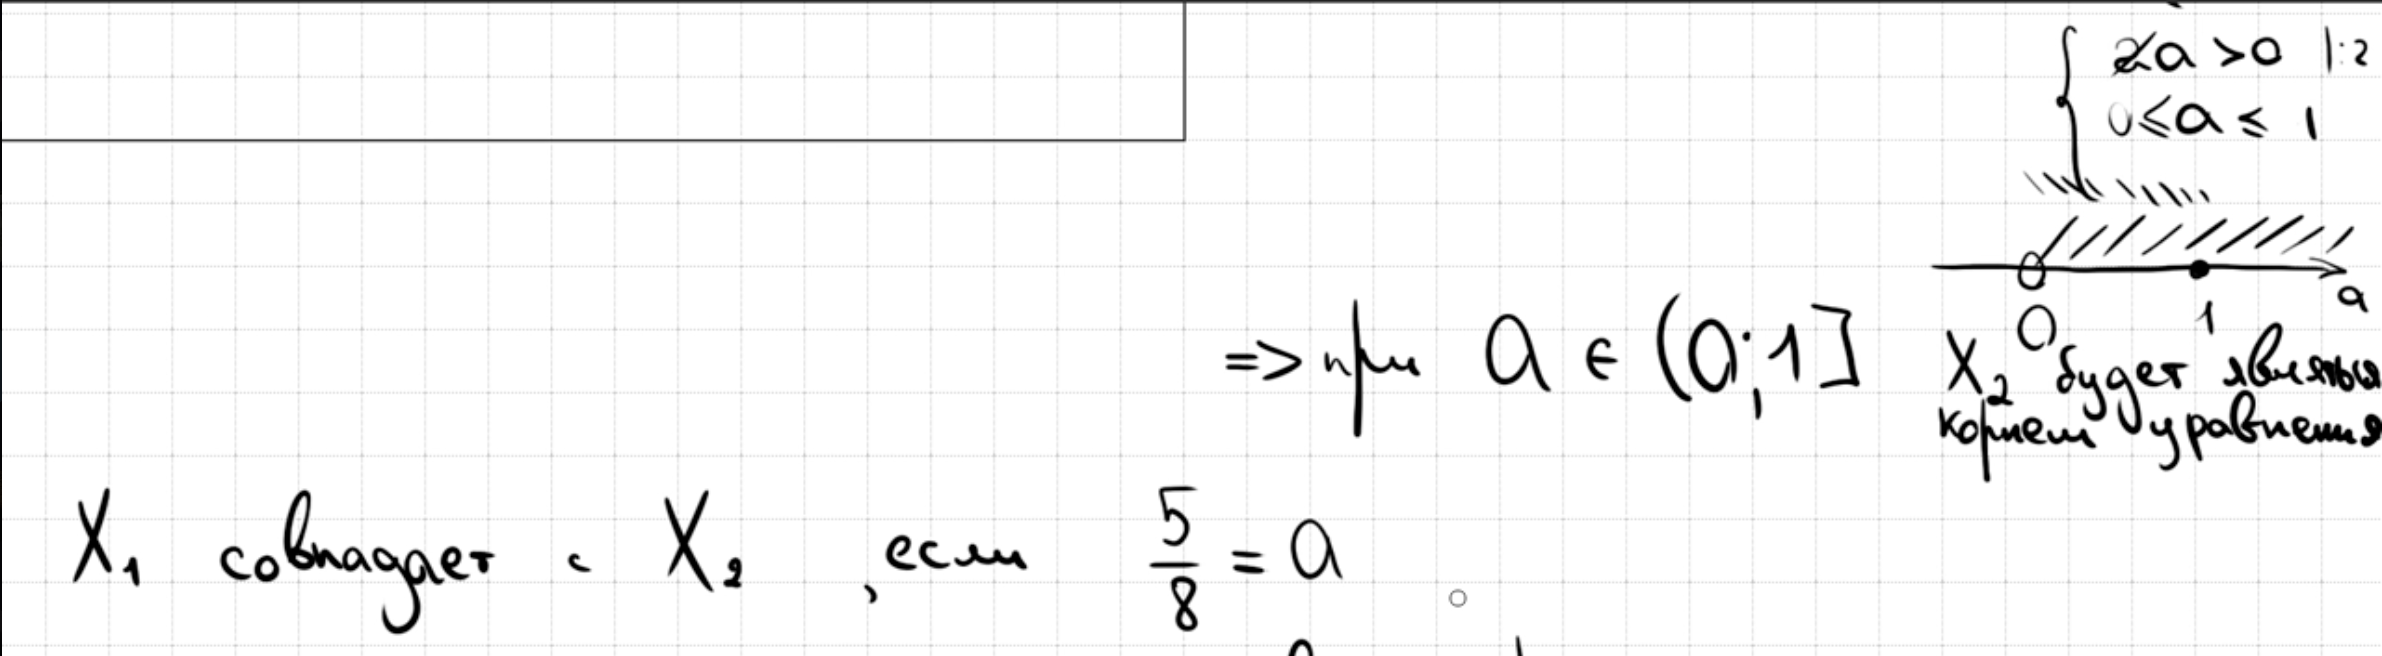 2a > 0 |:2
0 ≤ a ≤ 1
0 1 a
=> при a ∈ (0;1] X₂ будет являться
корнем уравнения
X₁ совпадает с X₂, если 5/8 = a